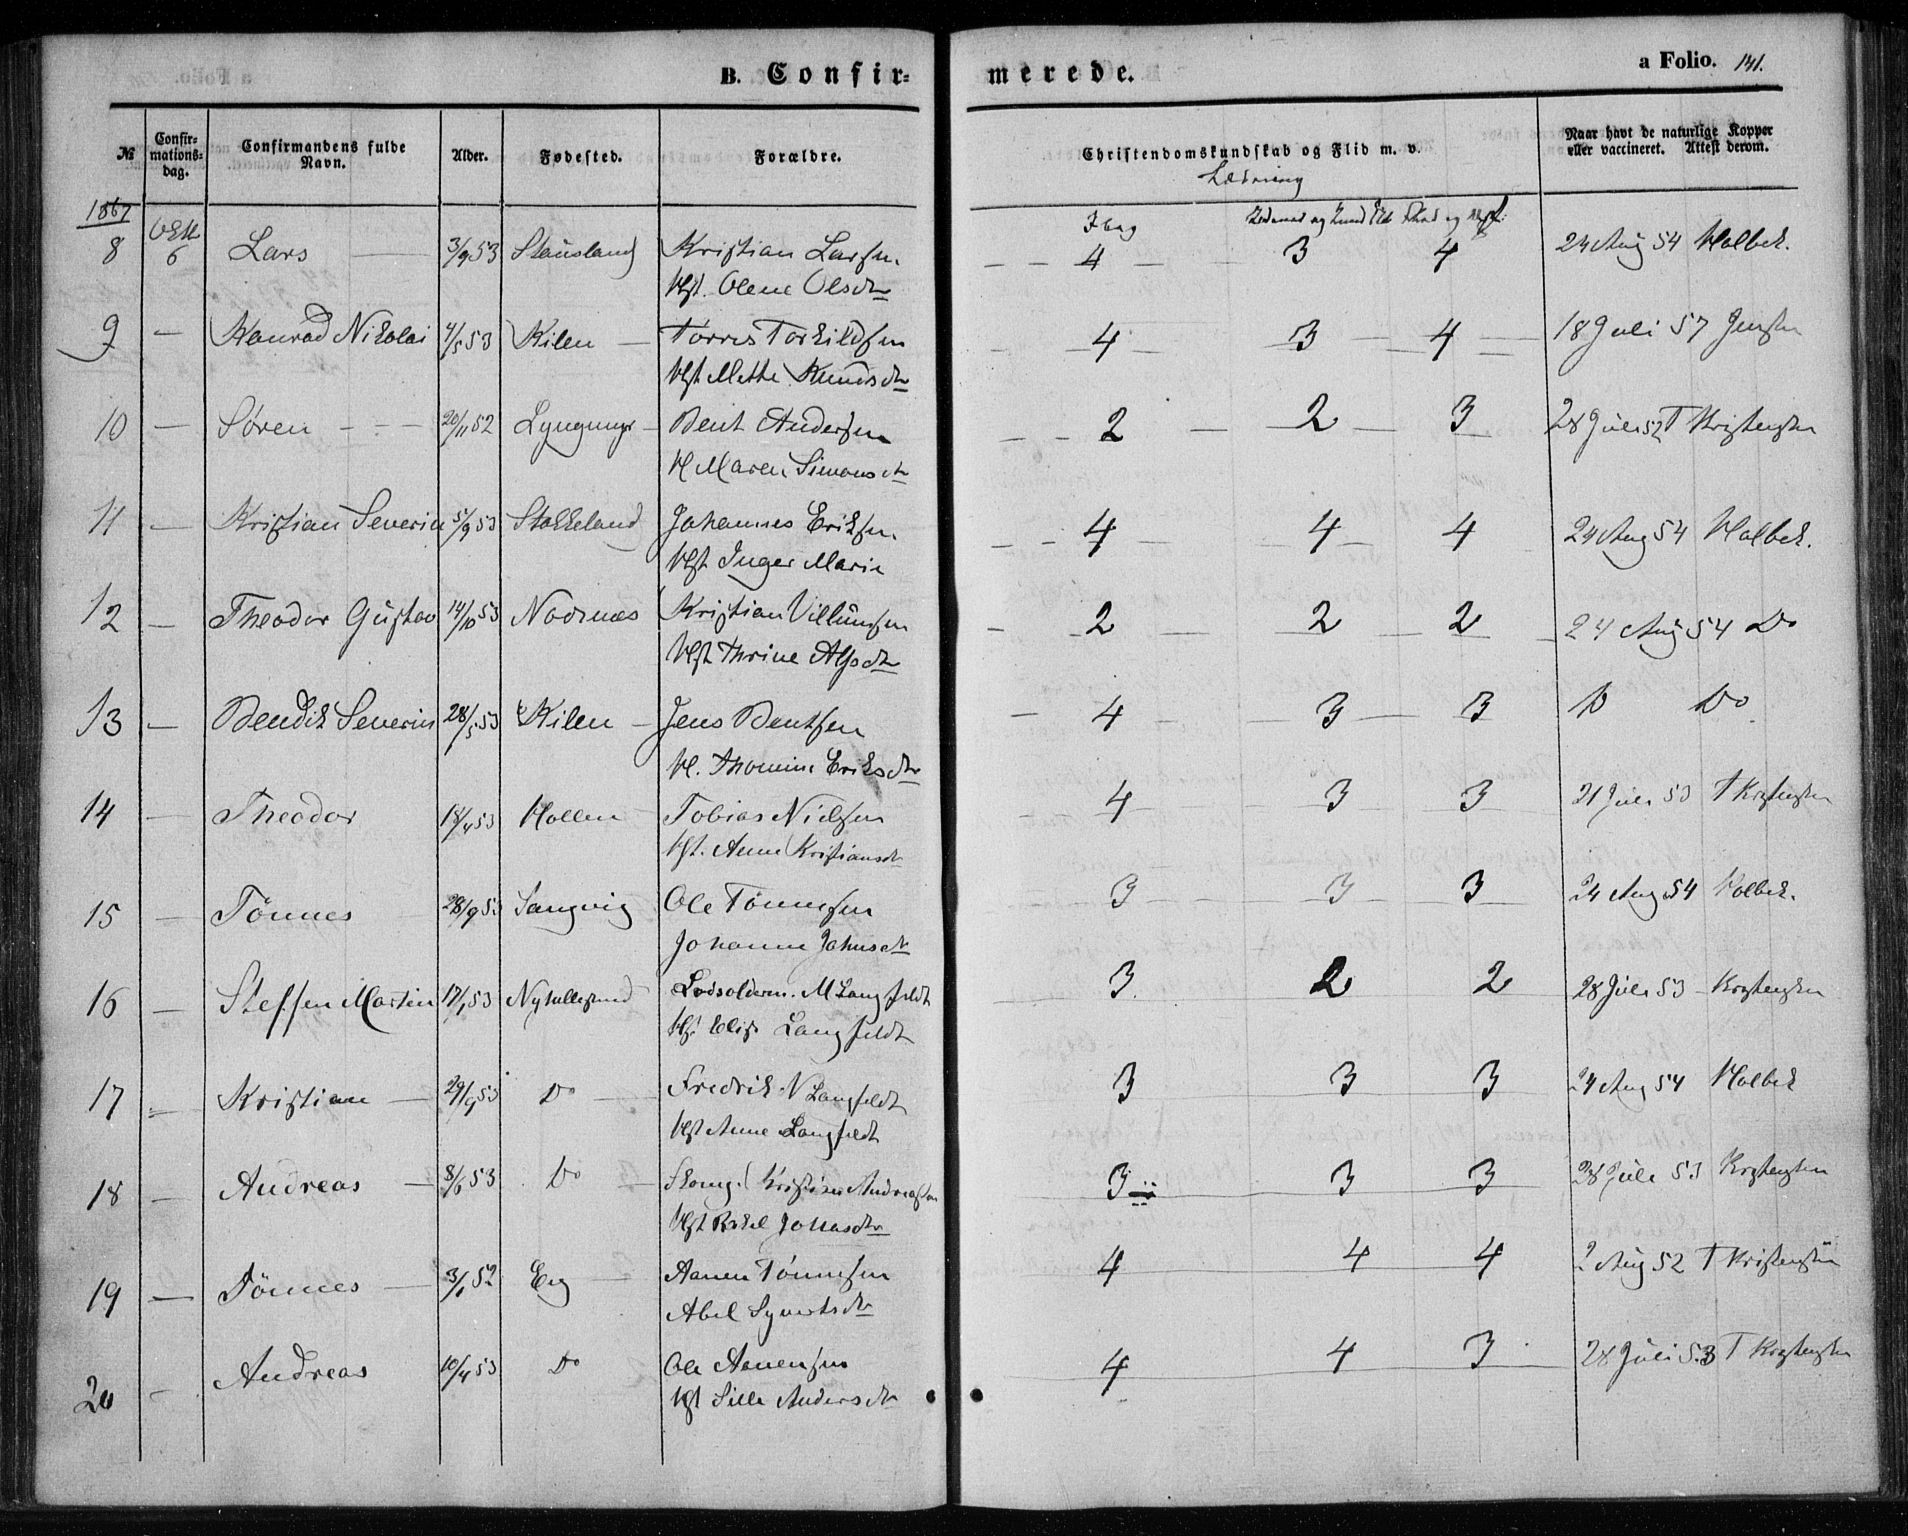 B. Confir-
merede.
a Folio. 141.
№
Confir-
mations-
dag.
Confirmandens fulde
Navn.
Alder.
Fødested.
Forældre.
Christendomskundskab og Flid m. v.
Læsning
Naar havt de naturlige Kopper
eller vaccineret. Attest derom.
1867
8 6 Lars 3/9 53 Stausland Kristian Larsen 4 3 4 24 Aug 54 Holbek.
Hst. Olene Olsdtr
9 — Konrad Nikolai 4/5 53 Kilen — Torres Torkildsen 4 3 4 18 Juli 57 Jensen
Hst Mette Knudsdtr
10 — Søren — 20/11 52 Lyngmyr — Bent Andersen 2 2 3 28 Juli 52 T Kristensen
H Maren Simonsdtr
11 — Kristian Severin 5/9 53 Stokkeland Johannes Eriksen 4 4 4 24 Aug 54 Holbek.
Hst Inger Marie
12 — Theodor Gustav 14/10 53 Nodenæs Kristian Villumsen 2 2 2 24 Aug 54 Do
Hst Thrine Alfsdtr
13 — Bendik Severin 28/5 53 Kilen — Jens Bentsen 4 3 3 Do Do
H. Thomine Eriksdtr
14 — Theodor 18/4 53 Hollen Tobias Nielsen 4 3 3 21 Juli 53 T Kristensen
Hst. Anne Kristiansdtr
15 — Tønnes 28/9 53 Langvig Ole Tønnesen 3 3 3 24 Aug 54 Holbek.
Johanne Jahnsdtr
16 — Steffen Martin 17/1 53 Ny Hellesund Lodsolderm. M Langfeldt 3 2 2 28 Juli 53 Kristensen
Hst. Elis. Langfeldt
17 — Kristian — 29/9 53 Do — Fredrik N Langfeldt 3 3 3 24 Aug 54 Holbek
Hst Anne Langfeldt
18 — Andreas — 8/6 53 Do Kristian Andreassen 3 3 3 28 Juli 53 Kristensen
Hst Rakel Jonasdtr
19 — Tønnes — 3/1 52 Eeg Aanen Tønnesen 4 4 4 2 Aug 52 T Kristensen
Abel Syvertsdtr
20 — Andreas 10/4 53 Do Ole Aanensen 4 4 3 28 Juli 53 T Kristensen
Hst Sille Andersdtr